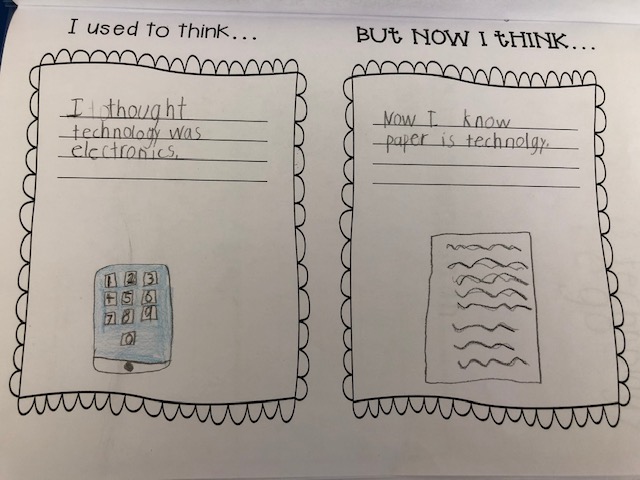 I used to think...
I thought
technology was
electronics.
1 2 3
4 5 6
7 8 9
0
BUt NOW I tHINK...
Now I know
paper is technolgy.